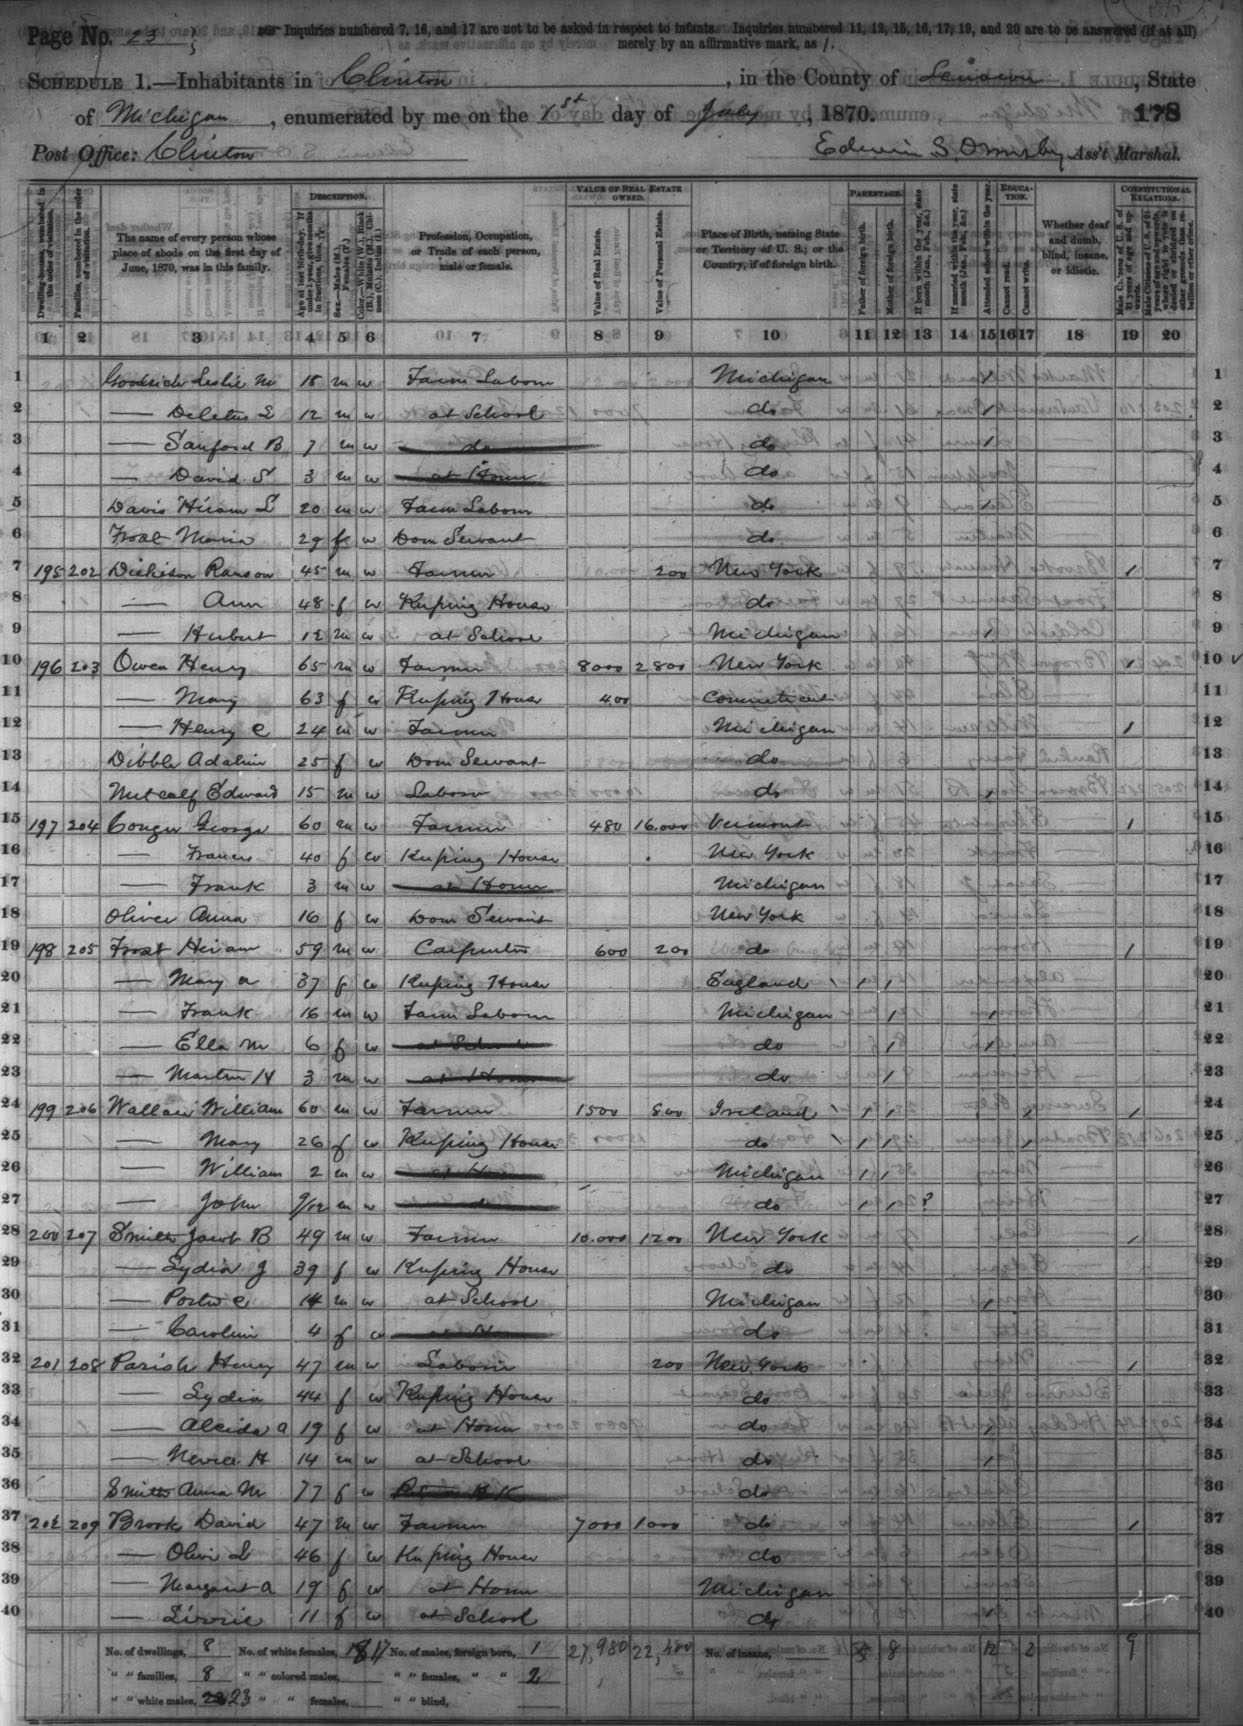 Page No. 23
Inquiries numbered 7, 16, and 17 are not to be asked in respect to infants. Inquiries numbered 11, 12, 15, 16, 17, 19, and 20 are to be answered (if at all) merely by an affirmative mark, as /.
SCHEDULE 1.—Inhabitants in Clinton, in the County of Lenawee, State
of Michigan, enumerated by me on the 1st day of July, 1870. 178
Post Office: Clinton Edwin S. Ormsby, Ass't Marshal.
DESCRIPTION. VALUE OF REAL ESTATE OWNED. PARENTAGE. EDUCATION. CONSTITUTIONAL RELATIONS.
Dwelling-houses, numbered in the order of visitation.
Families, numbered in the order of visitation.
The name of every person whose place of abode on the first day of June, 1870, was in this family.
Age at last birth-day. If under 1 year, give months in fractions, thus, 3/12.
Sex.—Males (M.), Females (F.)
Color.—White (W.), Black (B.), Mulatto (M.), Chinese (C.), Indian (I.)
Profession, Occupation, or Trade of each person, male or female.
Value of Real Estate.
Value of Personal Estate.
Place of Birth, naming State or Territory of U. S.; or the Country, if of foreign birth.
Father of foreign birth.
Mother of foreign birth.
If born within the year, state month (Jan., Feb., &c.)
If married within the year, state month (Jan., Feb., &c.)
Attended school within the year.
Cannot read.
Cannot write.
Whether deaf and dumb, blind, insane, or idiotic.
Male Citizens of U. S. of 21 years of age and upwards.
1 2 3 4 5 6 7 8 9 10 11 12 13 14 15 16 17 18 19 20
1 Goodrich Leslie M 18 m w Farm Labour Michigan / 1
2 — Deletus L 12 m w at School do / 2
3 — Sanford B 7 m w do do / 3
4 — David S 3 m w at Home do 4
5 Davis Hiram L 20 m w Farm Labour do / 5
6 Frost Maria 29 f w Dom Servant do 6
7 195 202 Dickison Ransom 45 m w Farmer 200 New York / 7
8 — Ann 48 f w Keeping House do 8
9 — Hubert 12 m w at School Michigan / 9
10 196 203 Owen Henry 65 m w Farmer 8000 2800 New York / 10
11 — Mary 63 f w Keeping House 400 Connecticut 11
12 — Henry C 24 m w Farmer Michigan / 12
13 Dibble Adaline 25 f w Dom Servant do 13
14 Metcalf Edward 15 m w Labour do / 14
15 197 204 Conger George 60 m w Farmer 480 16.000 Vermont / 15
16 — Frances 40 f w Keeping House New York 16
17 — Frank 3 m w at Home Michigan 17
18 Oliver Anna 16 f w Dom Servant New York 18
19 198 205 Frost Hiram 59 m w Carpenter 600 200 do / 19
20 — Mary A 37 f w Keeping House England / / 20
21 — Frank 16 m w Farm Labour Michigan / / 21
22 — Ella M 6 f w at School do / / 22
23 — Martin H 3 m w at Home do / 23
24 199 206 Wallace William 60 m w Farmer 1500 800 Ireland / / / / 24
25 — Mary 26 f w Keeping House do / / / 25
26 — William 2 m w at Home Michigan / / 26
27 — John 9/12 m w do do / / ? 27
28 200 207 Smith Jacob B 49 m w Farmer 10.000 1200 New York / 28
29 — Lydia J 39 f w Keeping House do 29
30 — Porter C 14 m w at School Michigan / 30
31 — Caroline 4 f w at Home do 31
32 201 208 Parish Henry 47 m w Labour 200 New York / 32
33 — Lydia 44 f w Keeping House do 33
34 — Alcida A 19 f w at Home do / 34
35 — H 14 m w at School do / 35
36 Smith Anna M 77 f w do 36
37 202 209 Brook David 47 m w Farmer 7000 1000 do / 37
38 — Olive L 46 f w Keeping House do 38
39 — Margaret A 19 f w at Home Michigan 39
40 — Lizzie 11 f w at School do / 40
No. of dwellings, 8 No. of white females, 17 No. of males, foreign born, 1 27,980 22,400 No. of insane, 8 12 2 9
" " families, 8 " " colored males, " " females, " " 2
" " white males, 23 " " females, " " blind,